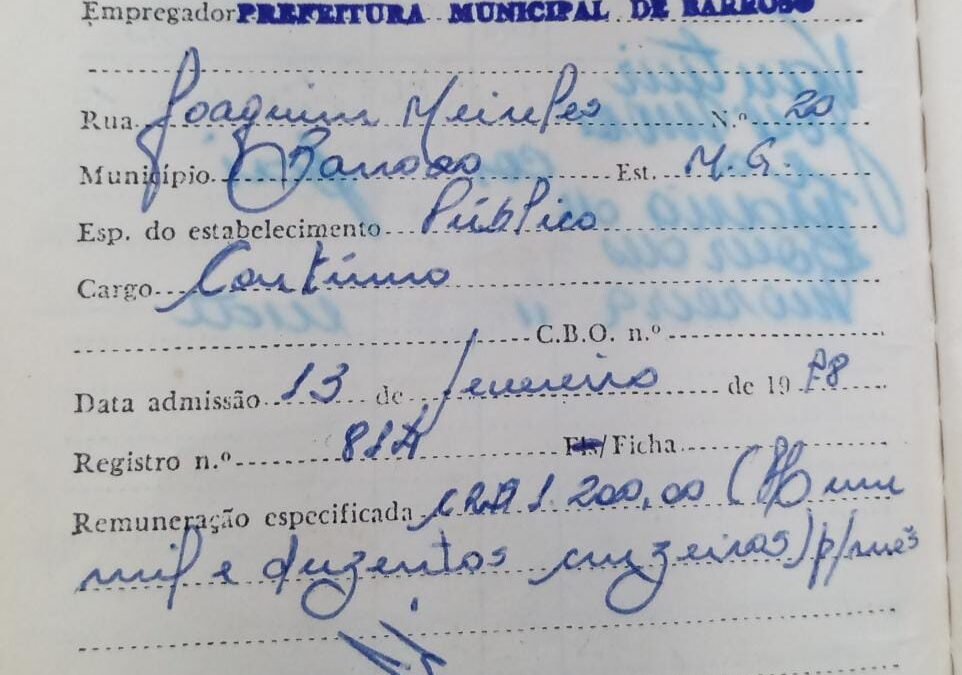 Empregador PREFEITURA MUNICIPAL DE BARROSO
Rua Joaquim Meireles N.º 20
Município Barroso Est. M.G.
Esp. do estabelecimento Público
Cargo Contínuo
C.B.O. n.º
Data admissão 13 de fevereiro de 1978
Registro n.º 81A Fls/Ficha
Remuneração especificada CR$ 1.200,00 (Hum
mil e duzentos cruzeiros) p/mês